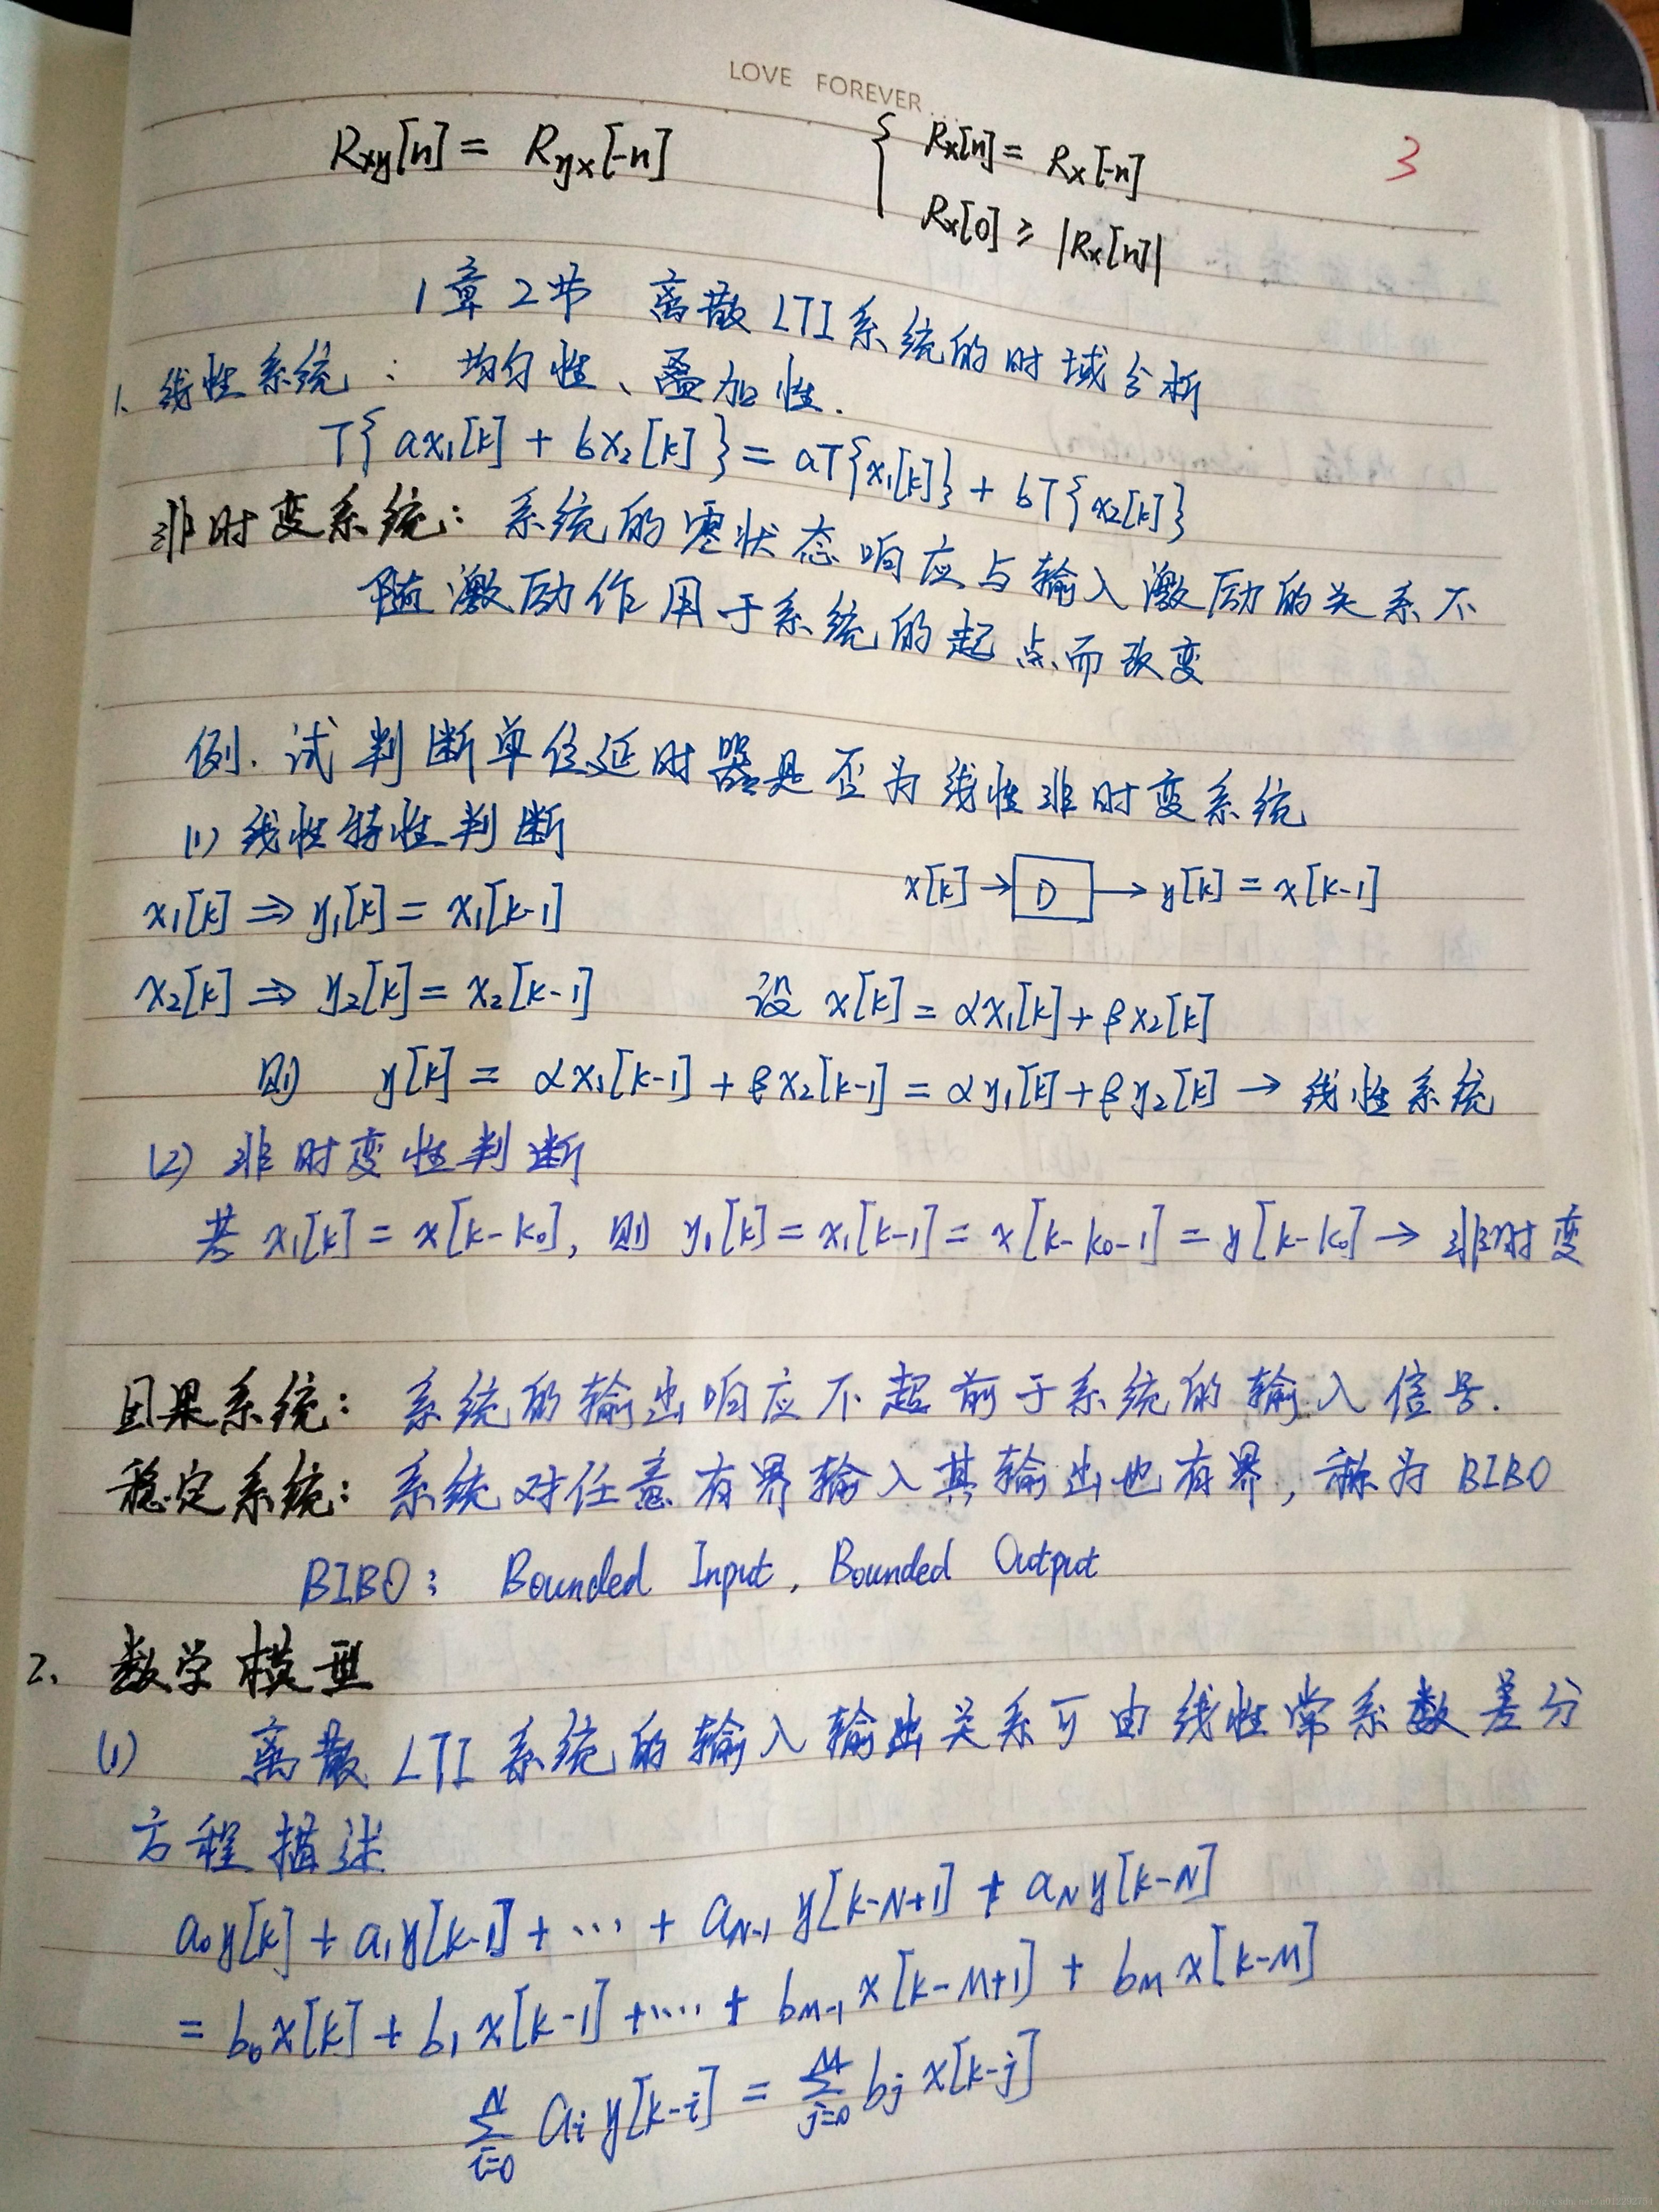 LOVE FOREVER
Rxy[n] = Ryx[-n]
{ Rx[n] = Rx[-n]
Rx[0] ≥ |Rx[n]|
3
1章2节 离散LTI系统的时域分析
1、线性系统：均匀性、叠加性.
T{ax₁[k] + bx₂[k]} = aT{x₁[k]} + bT{x₂[k]}
非时变系统：系统的零状态响应与输入激励的关系不
随激励作用于系统的起点而改变
例. 试判断单位延时器是否为线性非时变系统
(1) 线性特性判断
x[k] → D → y[k] = x[k-1]
x₁[k] ⇒ y₁[k] = x₁[k-1]
x₂[k] ⇒ y₂[k] = x₂[k-1] 设 x[k] = αx₁[k] + βx₂[k]
则 y[k] = αx₁[k-1] + βx₂[k-1] = αy₁[k] + βy₂[k] → 线性系统
(2) 非时变性判断
若 x₁[k] = x[k-k₀], 则 y₁[k] = x₁[k-1] = x[k-k₀-1] = y[k-k₀] → 非时变
因果系统：系统的输出响应不超前于系统的输入信号.
稳定系统：系统对任意有界输入其输出也有界, 称为 BIBO
BIBO: Bounded Input, Bounded Output
2、数学模型
(1) 离散LTI系统的输入输出关系可由线性常系数差分
方程描述
a₀y[k] + a₁y[k-1] + ... + a_{N-1}y[k-N+1] + a_N y[k-N]
= b₀x[k] + b₁x[k-1] + .... + b_{M-1}x[k-M+1] + b_M x[k-M]
∑_{i=0}^{N} aᵢy[k-i] = ∑_{j=0}^{M} bⱼx[k-j]